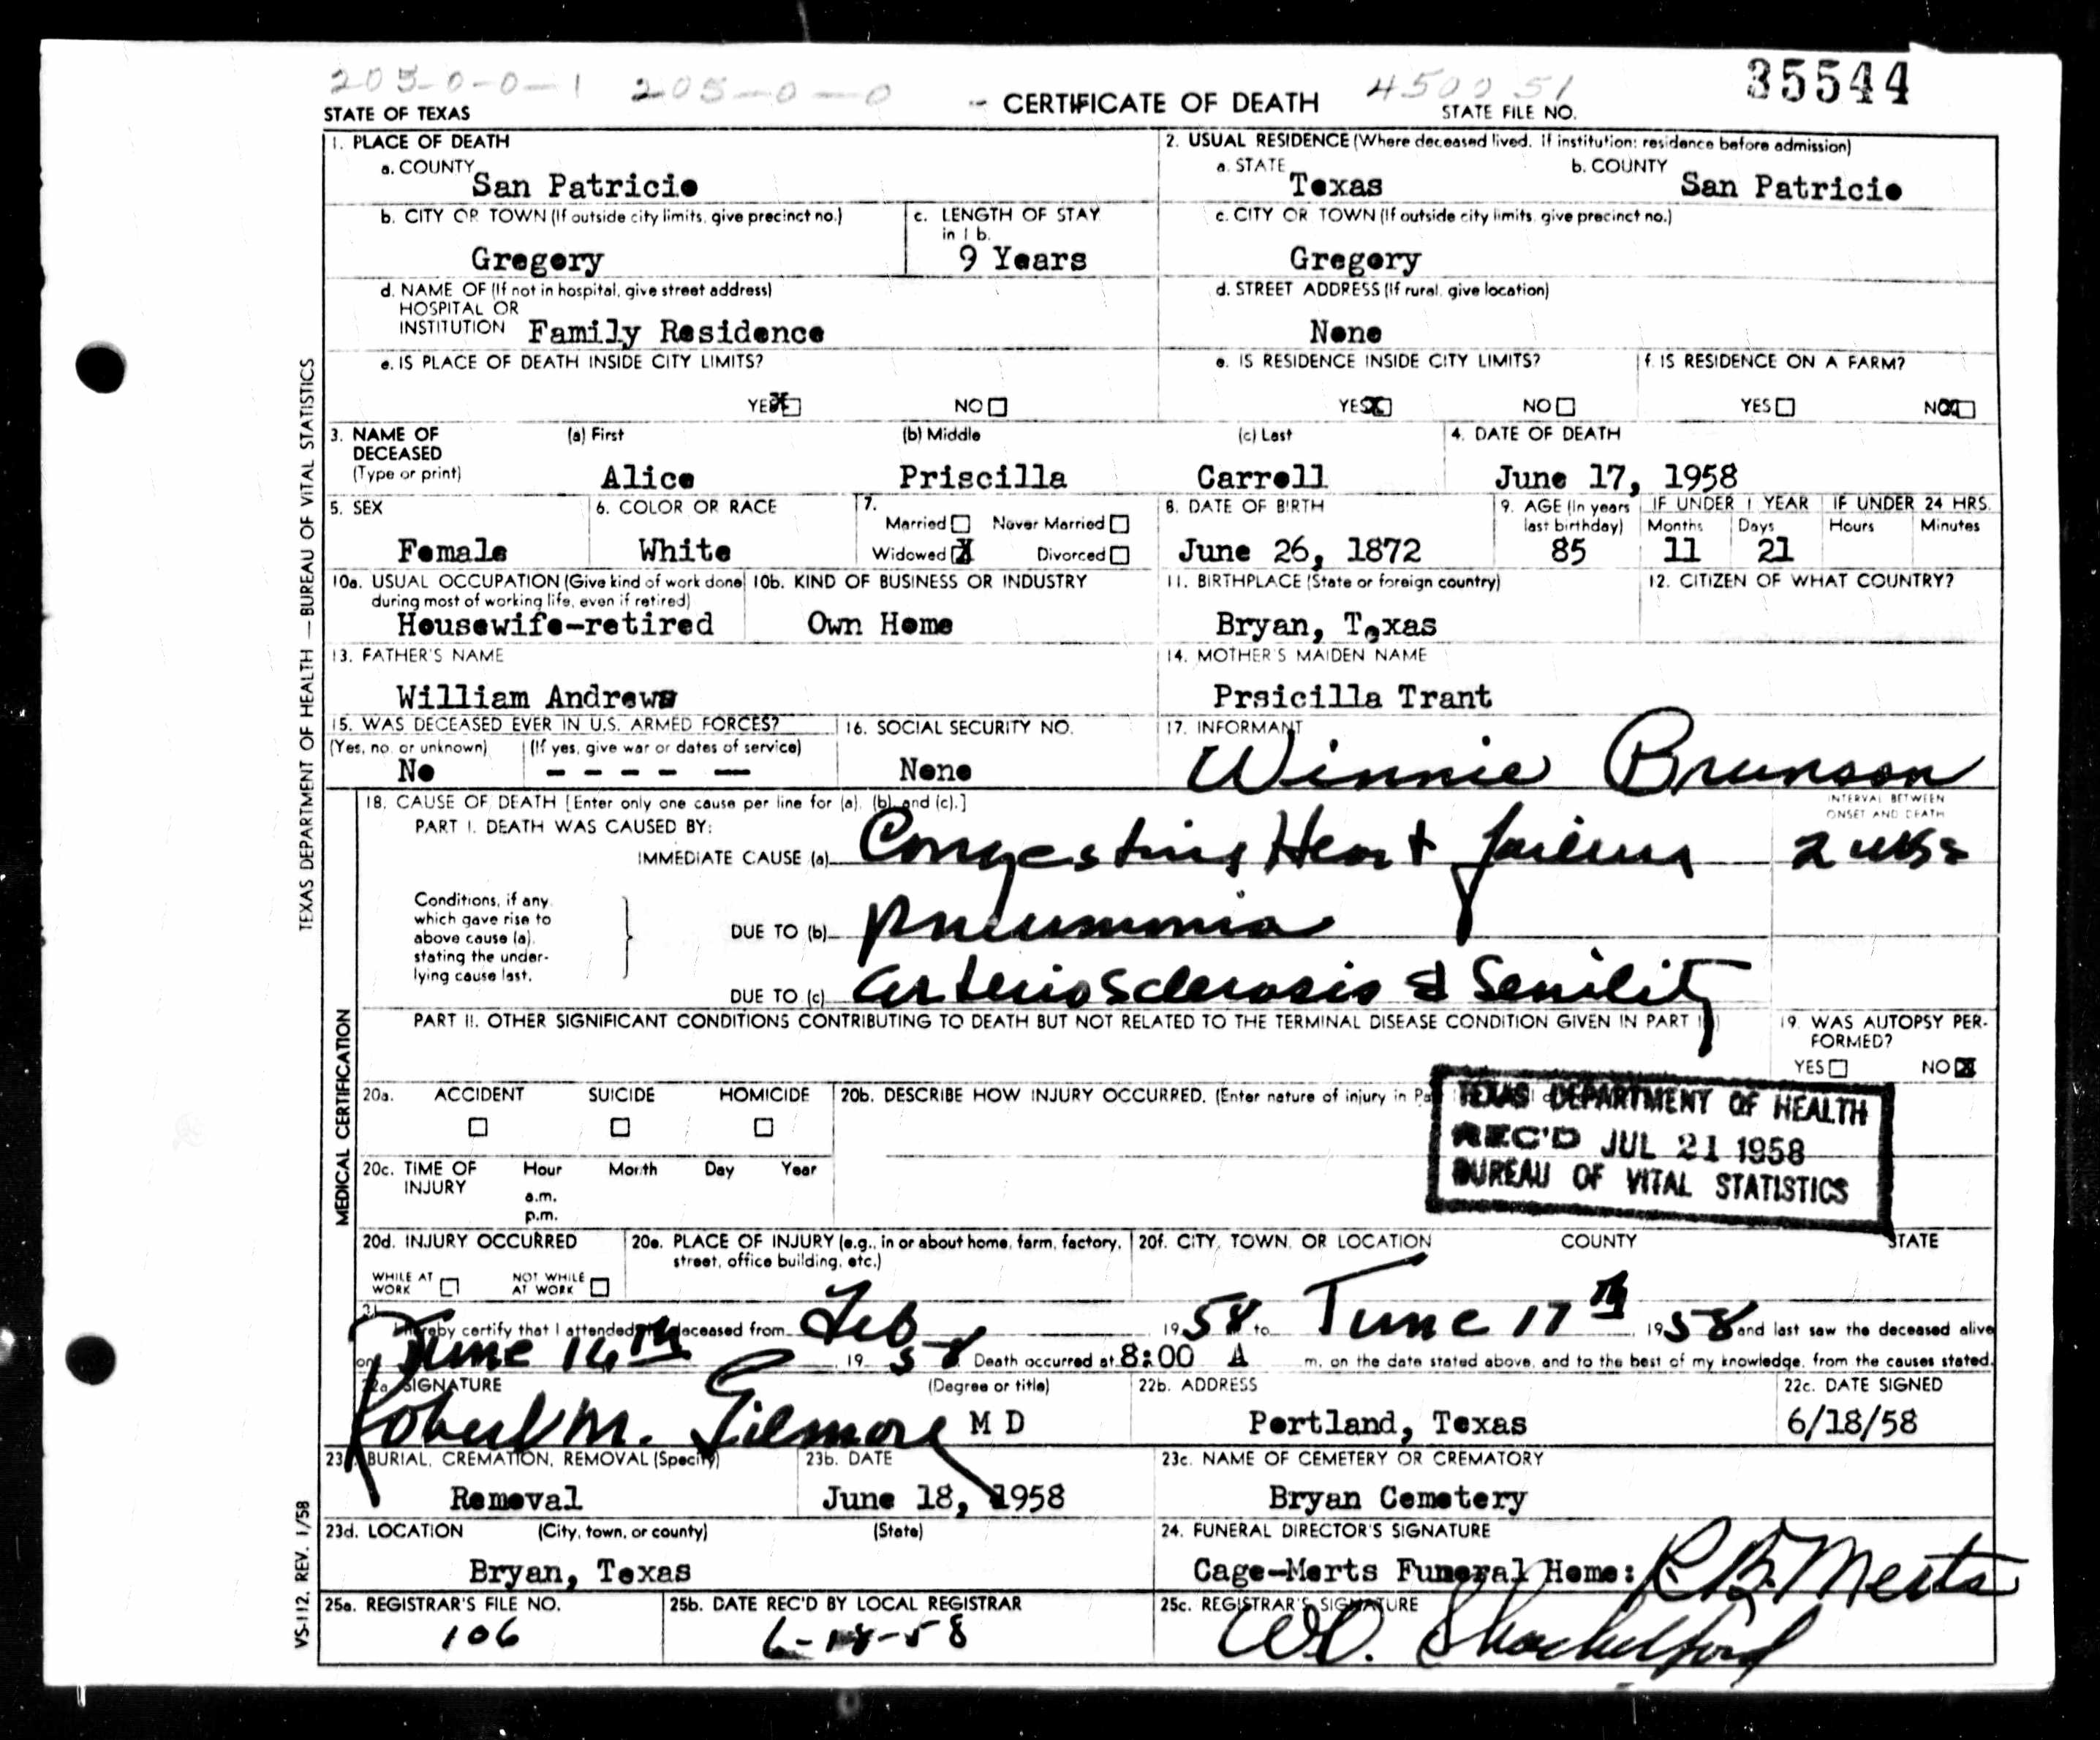 205-0-0-1 205-0-0 4500 51 35544
STATE OF TEXAS CERTIFICATE OF DEATH STATE FILE NO.
1. PLACE OF DEATH 2. USUAL RESIDENCE (Where deceased lived. If institution: residence before admission)
a. COUNTY San Patricio a. STATE Texas b. COUNTY San Patricio
b. CITY OR TOWN (If outside city limits, give precinct no.) c. LENGTH OF STAY in 1 b. c. CITY OR TOWN (If outside city limits, give precinct no.)
Gregory 9 Years Gregory
d. NAME OF (If not in hospital, give street address) d. STREET ADDRESS (If rural, give location)
HOSPITAL OR
INSTITUTION Family Residence None
e. IS PLACE OF DEATH INSIDE CITY LIMITS? e. IS RESIDENCE INSIDE CITY LIMITS? f. IS RESIDENCE ON A FARM?
YES X NO YES X NO YES NO X
3. NAME OF DECEASED (Type or print) (a) First (b) Middle (c) Last 4. DATE OF DEATH
Alice Priscilla Carroll June 17, 1958
5. SEX 6. COLOR OR RACE 7. Married Never Married 8. DATE OF BIRTH 9. AGE (In years last birthday) IF UNDER 1 YEAR IF UNDER 24 HRS.
Widowed X Divorced Months Days Hours Minutes
Female White June 26, 1872 85 11 21
10a. USUAL OCCUPATION (Give kind of work done during most of working life, even if retired) 10b. KIND OF BUSINESS OR INDUSTRY 11. BIRTHPLACE (State or foreign country) 12. CITIZEN OF WHAT COUNTRY?
Housewife-retired Own Home Bryan, Texas
13. FATHER'S NAME 14. MOTHER'S MAIDEN NAME
William Andrews Prsicilla Trant
15. WAS DECEASED EVER IN U.S. ARMED FORCES? 16. SOCIAL SECURITY NO. 17. INFORMANT
(Yes, no, or unknown) (If yes, give war or dates of service)
No - - - - - None Winnie Brunson
18. CAUSE OF DEATH [Enter only one cause per line for (a), (b), and (c).] INTERVAL BETWEEN ONSET AND DEATH
PART I. DEATH WAS CAUSED BY:
IMMEDIATE CAUSE (a) Congestive Heart failure 2 wks
Conditions, if any, which gave rise to above cause (a), stating the underlying cause last.
DUE TO (b) pneumonia
DUE TO (c) arteriosclerosis & Senility
PART II. OTHER SIGNIFICANT CONDITIONS CONTRIBUTING TO DEATH BUT NOT RELATED TO THE TERMINAL DISEASE CONDITION GIVEN IN PART I 19. WAS AUTOPSY PERFORMED?
YES NO X
20a. ACCIDENT SUICIDE HOMICIDE 20b. DESCRIBE HOW INJURY OCCURRED. (Enter nature of injury in
TEXAS DEPARTMENT OF HEALTH
REC'D JUL 21 1958
BUREAU OF VITAL STATISTICS
20c. TIME OF INJURY Hour Month Day Year
a.m.
p.m.
20d. INJURY OCCURRED 20e. PLACE OF INJURY (e.g., in or about home, farm, factory, street, office building, etc.) 20f. CITY, TOWN, OR LOCATION COUNTY STATE
WHILE AT WORK NOT WHILE AT WORK
21. I hereby certify that I attended the deceased from Feb 1958 to June 17th, 1958 and last saw the deceased alive
on June 16th, 1958 Death occurred at 8:00 A m. on the date stated above, and to the best of my knowledge, from the causes stated.
22a. SIGNATURE (Degree or title) 22b. ADDRESS 22c. DATE SIGNED
Robert M. Gilmore M D Portland, Texas 6/18/58
23a. BURIAL, CREMATION, REMOVAL (Specify) 23b. DATE 23c. NAME OF CEMETERY OR CREMATORY
Removal June 18, 1958 Bryan Cemetery
23d. LOCATION (City, town, or county) (State) 24. FUNERAL DIRECTOR'S SIGNATURE
Bryan, Texas Cage-Merts Funeral Home: R.B. Merts
25a. REGISTRAR'S FILE NO. 25b. DATE REC'D BY LOCAL REGISTRAR 25c. REGISTRAR'S SIGNATURE
106 6-18-58 Shackelford
TEXAS DEPARTMENT OF HEALTH — BUREAU OF VITAL STATISTICS
MEDICAL CERTIFICATION
VS-112. REV. 1/58